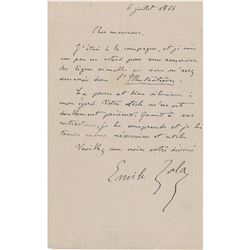 6 juillet 1886
Cher monsieur,
J'étais à la campagne, et je suis
un peu en retard pour vous remercier
des lignes aimables que vous
dans l'Illustration.
La presse est bien silencieuse à
mon égard. Votre article m'en est
doublement précieux. Quant à vos
restrictions, je les comprends et je les
trouve même nécessaires et utiles.
Veuillez me croire votre dévoué
Emile Zola